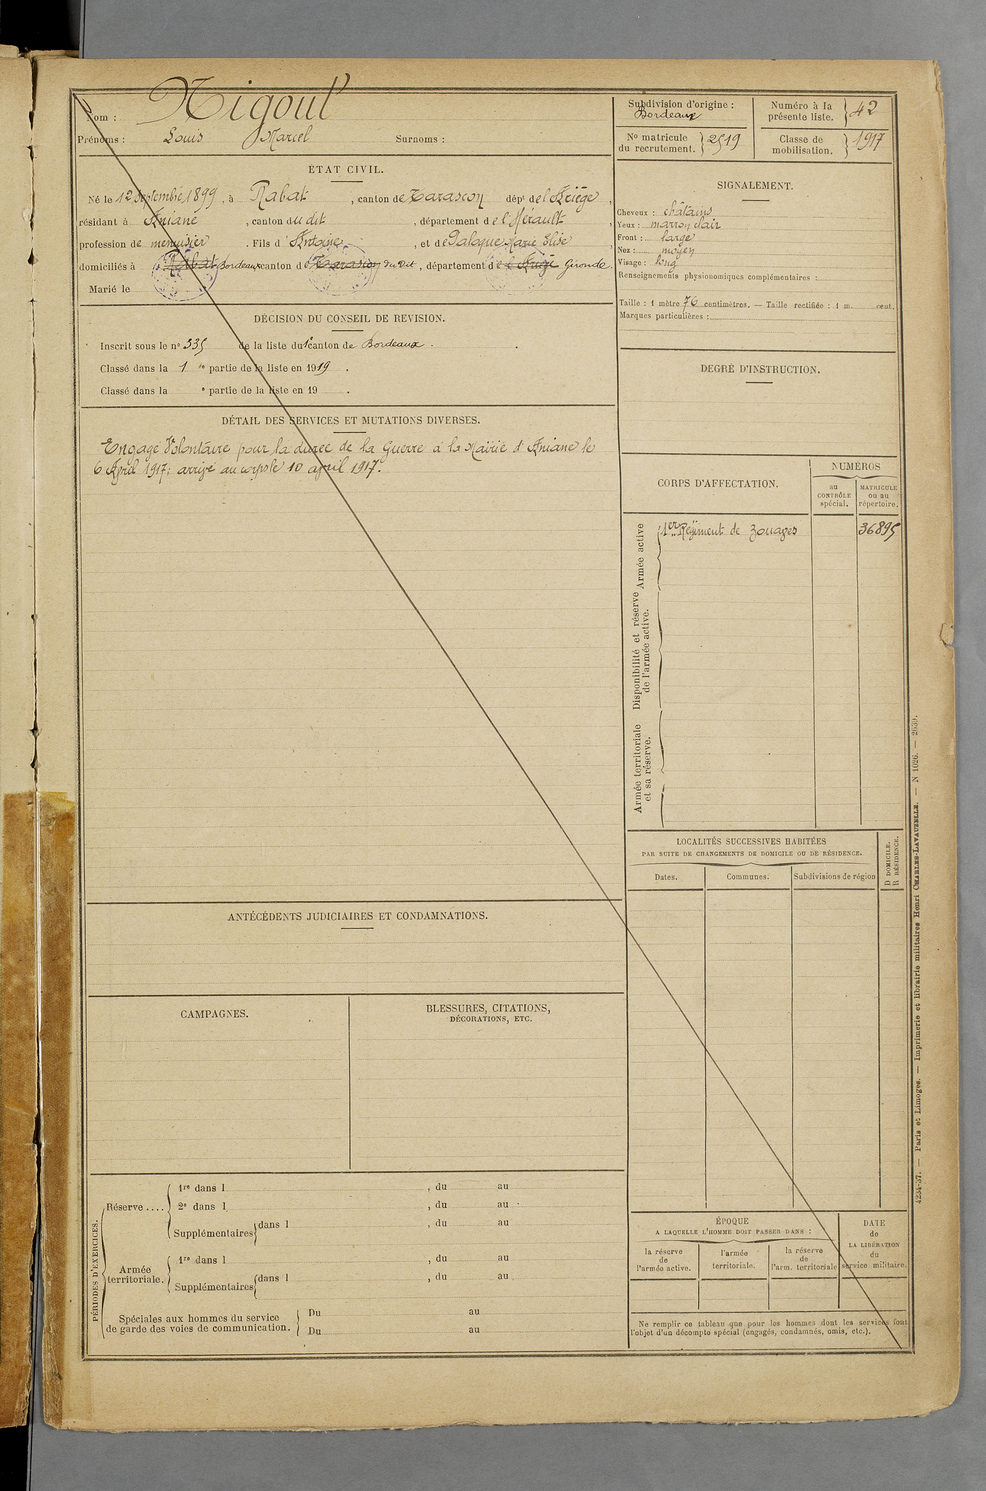 Nom : Nigoul
Prénoms : Louis Marcel Surnoms :
ÉTAT CIVIL.
Né le 12 Septembre 1899, à Rabat, canton de Tarascon dépt de l'Ariège,
résidant à Aniane, canton du dit, département de l'Hérault,
profession de menuisier. Fils d'Antoine, et de Palaque Marie Elise,
domiciliés à Rabat Bordeaux canton de Tarascon du dit, département de l'Ariège Gironde.
Marié le
DÉCISION DU CONSEIL DE REVISION.
Inscrit sous le no 335 de la liste du 1e canton de Bordeaux.
Classé dans la 1re partie de la liste en 1919.
Classé dans la e partie de la liste en 19 .
DÉTAIL DES SERVICES ET MUTATIONS DIVERSES.
Engagé Volontaire pour la durée de la Guerre à la Mairie d'Aniane le
6 April 1917: arrivé au corps le 10 april 1917.
ANTÉCÉDENTS JUDICIAIRES ET CONDAMNATIONS.
CAMPAGNES.
BLESSURES, CITATIONS,
DÉCORATIONS, ETC.
PÉRIODES D'EXERCICES.
Réserve ....
1re dans l , du au
2e dans l , du au
Supplémentaires dans l , du au
Armée territoriale.
1re dans l , du au
Supplémentaires dans l , du au
Spéciales aux hommes du service
de garde des voies de communication.
Du au
Du au
Subdivision d'origine :
Bordeaux
Numéro à la présente liste. 42
No matricule du recrutement. 2519
Classe de mobilisation. 1917
SIGNALEMENT.
Cheveux : châtains
Yeux : marron clair
Front : large
Nez : moyen
Visage : long
Renseignements physionomiques complémentaires :
Taille : 1 mètre 76 centimètres. — Taille rectifiée : 1 m. cent.
Marques particulières :
DEGRÉ D'INSTRUCTION.
CORPS D'AFFECTATION.
NUMÉROS
au CONTRÔLE spécial.
MATRICULE ou au répertoire.
Armée active
1er Régiment de Zouaves 36895
Disponibilité et réserve
de l'armée active.
Armée territoriale
et sa réserve.
LOCALITÉS SUCCESSIVES HABITÉES
PAR SUITE DE CHANGEMENTS DE DOMICILE OU DE RÉSIDENCE.
D DOMICILE.
R RÉSIDENCE.
Dates. Communes. Subdivisions de région
ÉPOQUE
A LAQUELLE L'HOMME DOIT PASSER DANS :
la réserve de l'armée active.
l'armée territoriale.
la réserve de l'arm. territoriale
DATE de LA LIBÉRATION du service militaire.
Ne remplir ce tableau que pour les hommes dont les services font
l'objet d'un décompte spécial (engagés, condamnés, omis, etc.).
4234-37. — Paris et Limoges. — Imprimerie et librairie militaires Henri CHARLES-LAVAUZELLE. — N 1026. — 2639.